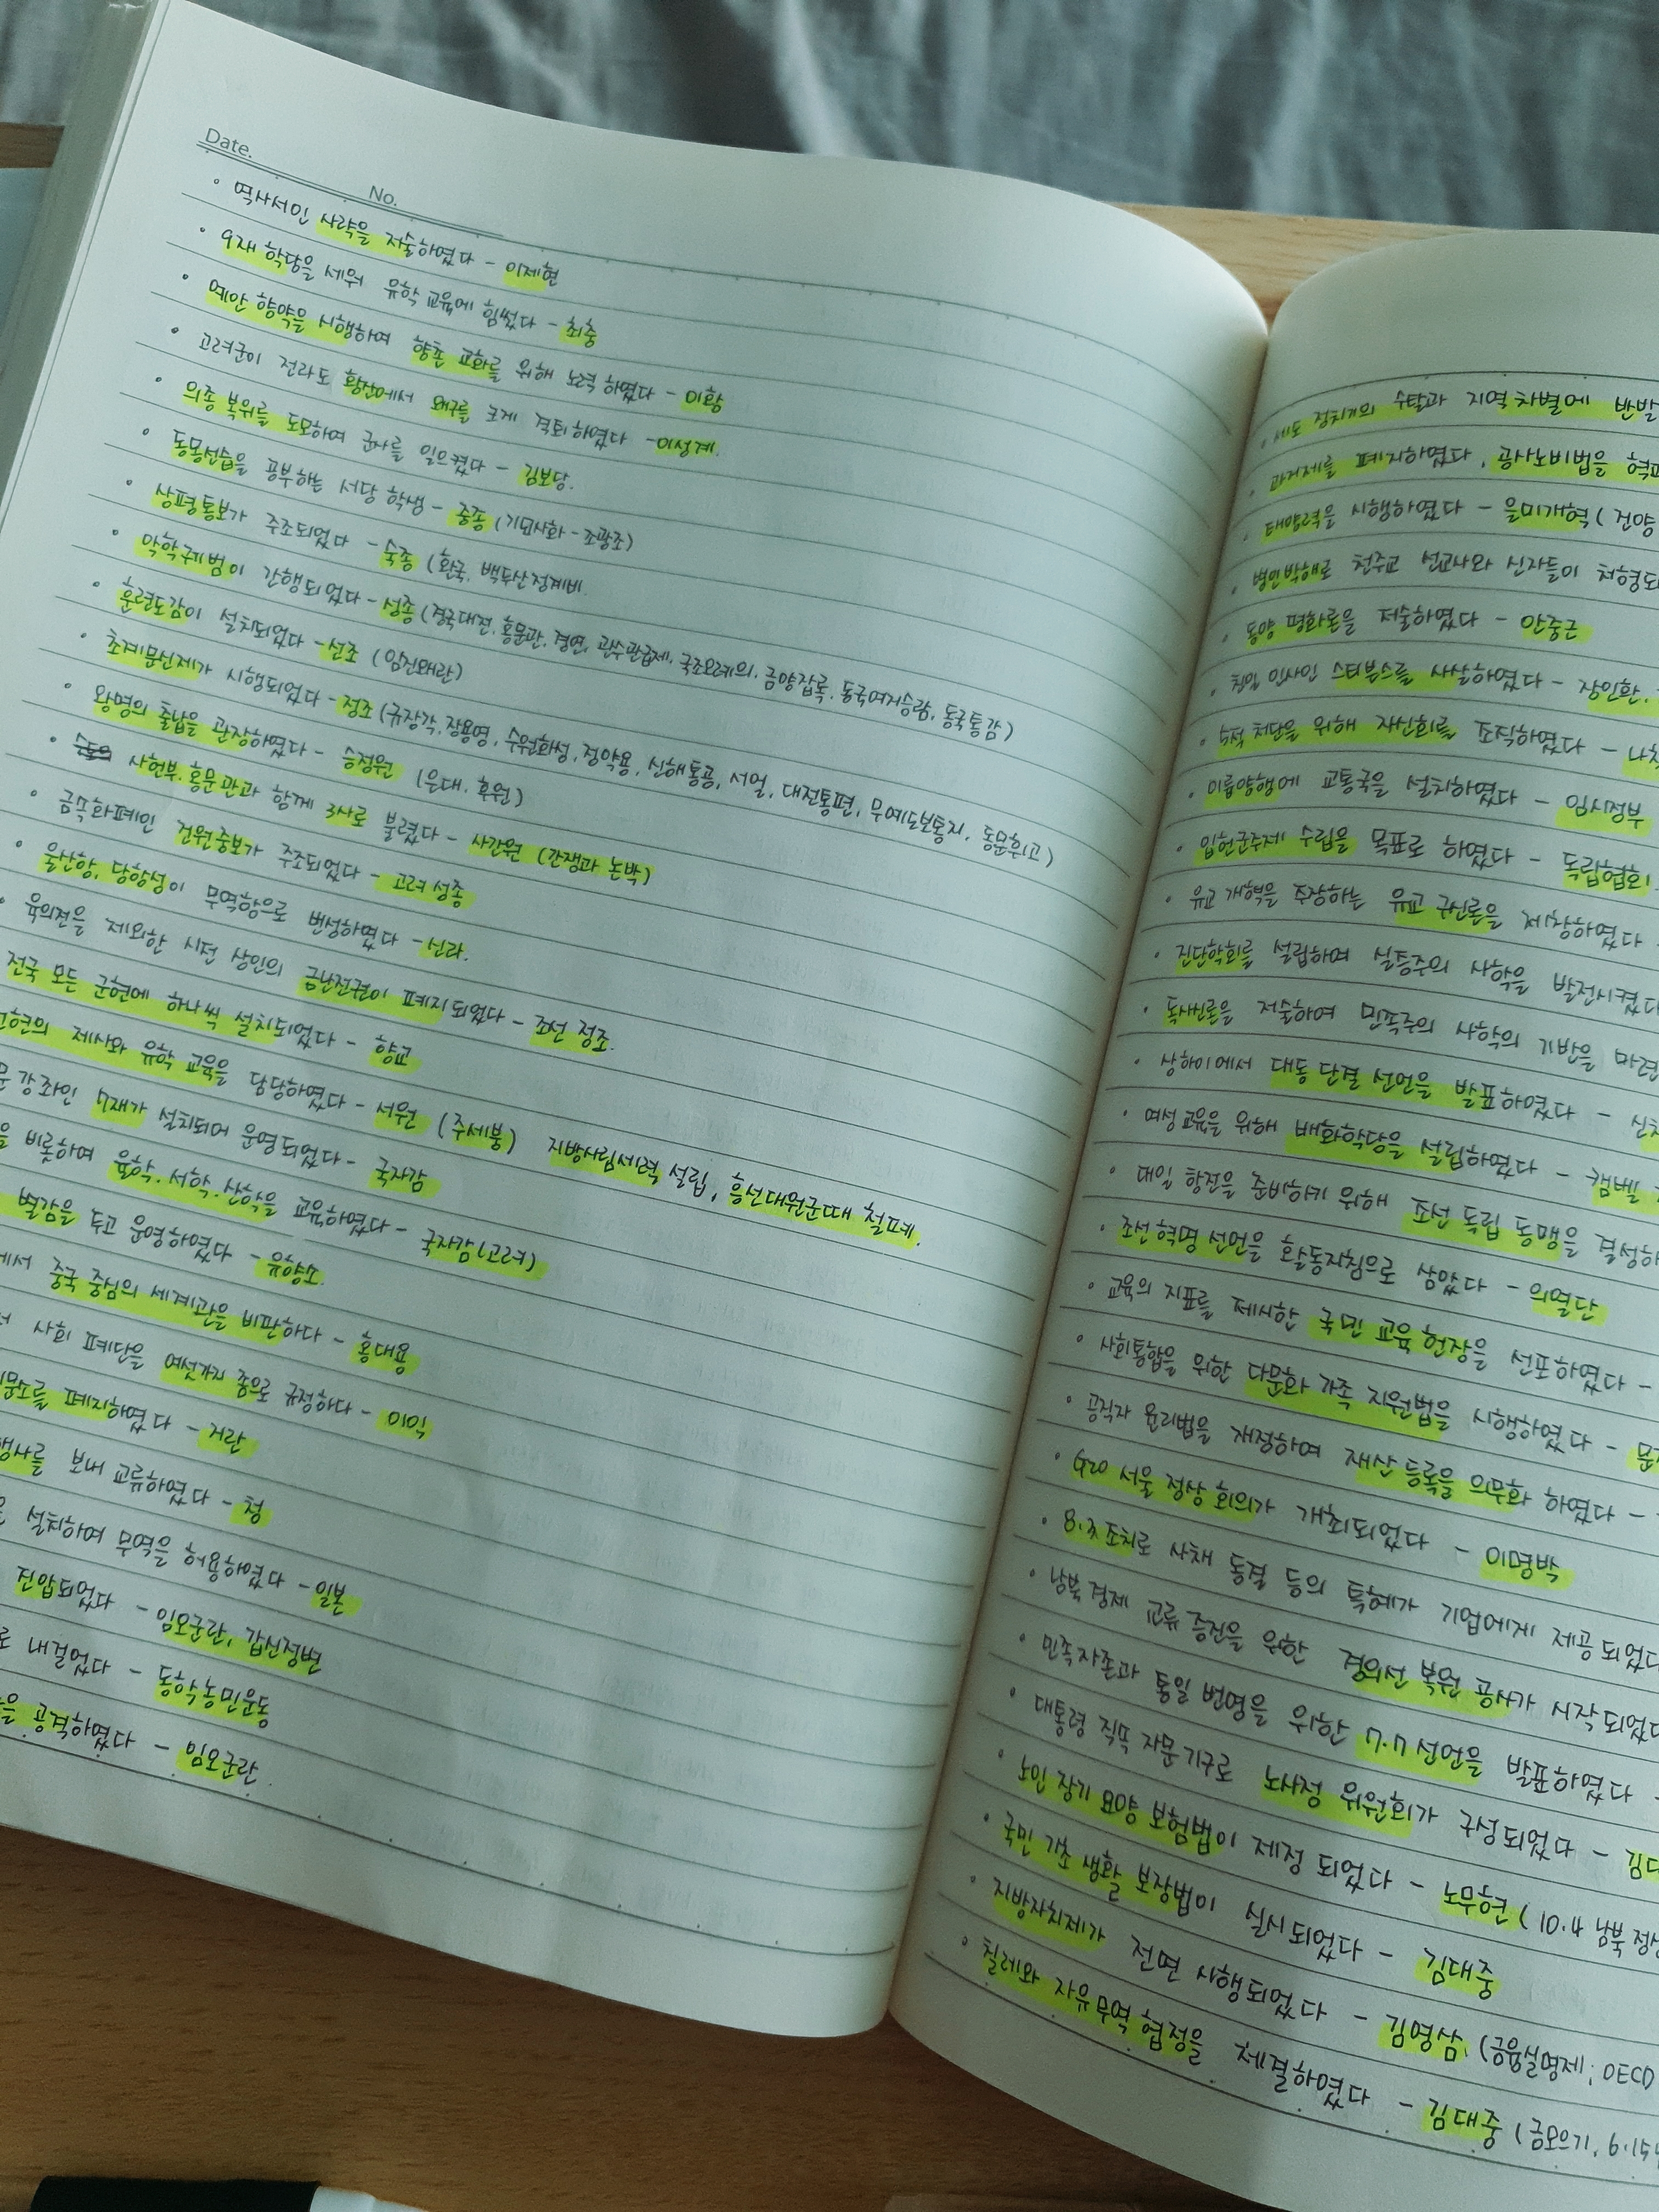 Date.
No.
· 역사서인 사략을 저술하였다 - 이제현
· 9재 학당을 세워 유학 교육에 힘썼다 - 최충
· 예안 향약을 시행하여 향촌 교화를 위해 노력 하였다 - 이황
· 고려군이 전라도 황산에서 왜구를 크게 격퇴하였다 - 이성계.
· 의종 복위를 도모하여 군사를 일으켰다 - 김보당.
· 동몽선습을 공부하는 서당 학생 - 중종 (기묘사화 - 조광조)
· 상평통보가 주조되었다 - 숙종 (환국, 백두산정계비.
· 악학궤범이 간행되었다 - 성종 (경국대전, 홍문관, 경연, 관수관급제, 국조오례의, 금양잡록, 동국여지승람, 동국통감)
· 훈련도감이 설치되었다 - 선조 (임진왜란)
· 초계문신제가 시행되었다 - 정조 (규장각, 장용영, 수원화성, 정약용, 신해통공, 서얼, 대전통편, 무예도보통지, 동문휘고)
· 왕명의 출납을 관장하였다 - 승정원 (은대, 후원)
· 사헌부, 홍문관과 함께 3사로 불렸다 - 사간원 (간쟁과 논박)
· 금속화폐인 건원중보가 주조되었다 - 고려 성종
· 울산항, 당항성이 무역항으로 번성하였다 - 신라.
· 육의전을 제외한 시전 상인의 금난전권이 폐지되었다 - 조선 정조.
전국 모든 군현에 하나씩 설치되었다 - 향교
선현의 제사와 유학 교육을 담당하였다 - 서원 (주세붕) 지방사림세력 설립, 흥선대원군때 철폐.
문 강좌인 7재가 설치되어 운영되었다 - 국자감
을 비롯하여 율학, 서학, 산학을 교육하였다 - 국자감(고려)
별감을 두고 운영하였다 - 유향소.
에서 중국 중심의 세계관을 비판하다 - 홍대용
서 사회 폐단을 여섯가지 좀으로 규정하다 - 이익
문소를 폐지하였다 - 거란
행사를 보내 교류하였다 - 청
설치하여 무역을 허용하였다 - 일본
진압되었다 - 임오군란, 갑신정변
로 내걸었다 - 동학농민운동
을 공격하였다 - 임오군란.
· 세도 정치기의 수탈과 지역 차별에 반발
· 과거제를 폐지하였다, 공사노비법을 혁파
· 태양력을 시행하였다 - 을미개혁 (건양
· 병인박해로 천주교 선교사와 신자들이 처형되
· 동양 평화론을 저술하였다 - 안중근
· 친일 인사인 스티븐스를 사살하였다 - 장인환,
· 5적 처단을 위해 자신회를 조직하였다 - 나철
· 이륭양행에 교통국을 설치하였다 - 임시정부
· 입헌군주제 수립을 목표로 하였다 - 독립협회
· 유교 개혁을 주장하는 유교 구신론을 제창하였다 -
· 진단학회를 설립하여 실증주의 사학을 발전시켰다
· 독사신론을 저술하여 민족주의 사학의 기반을 마련
· 상하이에서 대동 단결 선언을 발표하였다 - 신
· 여성 교육을 위해 배화학당을 설립하였다 - 캠벨
· 대일 항전을 준비하기 위해 조선 독립 동맹을 결성하
· 조선 혁명 선언을 활동지침으로 삼았다 - 의열단
· 교육의 지표를 제시한 국민 교육 헌장을 선포하였다 -
· 사회통합을 위한 다문화 가족 지원법을 시행하였다 -
· 공직자 윤리법을 개정하여 재산 등록을 의무화 하였다 -
· G20 서울 정상 회의가 개최되었다 - 이명박
· 8.3 조치로 사채 동결 등의 특혜가 기업에게 제공되었다
· 남북 경제 교류 증진을 위한 경의선 복원 공사가 시작되었다
· 민족자존과 통일 번영을 위한 7.7 선언을 발표하였다 -
· 대통령 직속 자문 기구로 노사정 위원회가 구성되었다 - 김대
· 노인 장기 요양 보험법이 제정 되었다 - 노무현 (10.4 남북 정상
· 국민 기초 생활 보장법이 실시되었다 - 김대중
· 지방자치제가 전면 시행되었다 - 김영삼. (금융실명제, OECD
· 칠레와 자유무역 협정을 체결하였다 - 김대중 (금모으기, 6.15